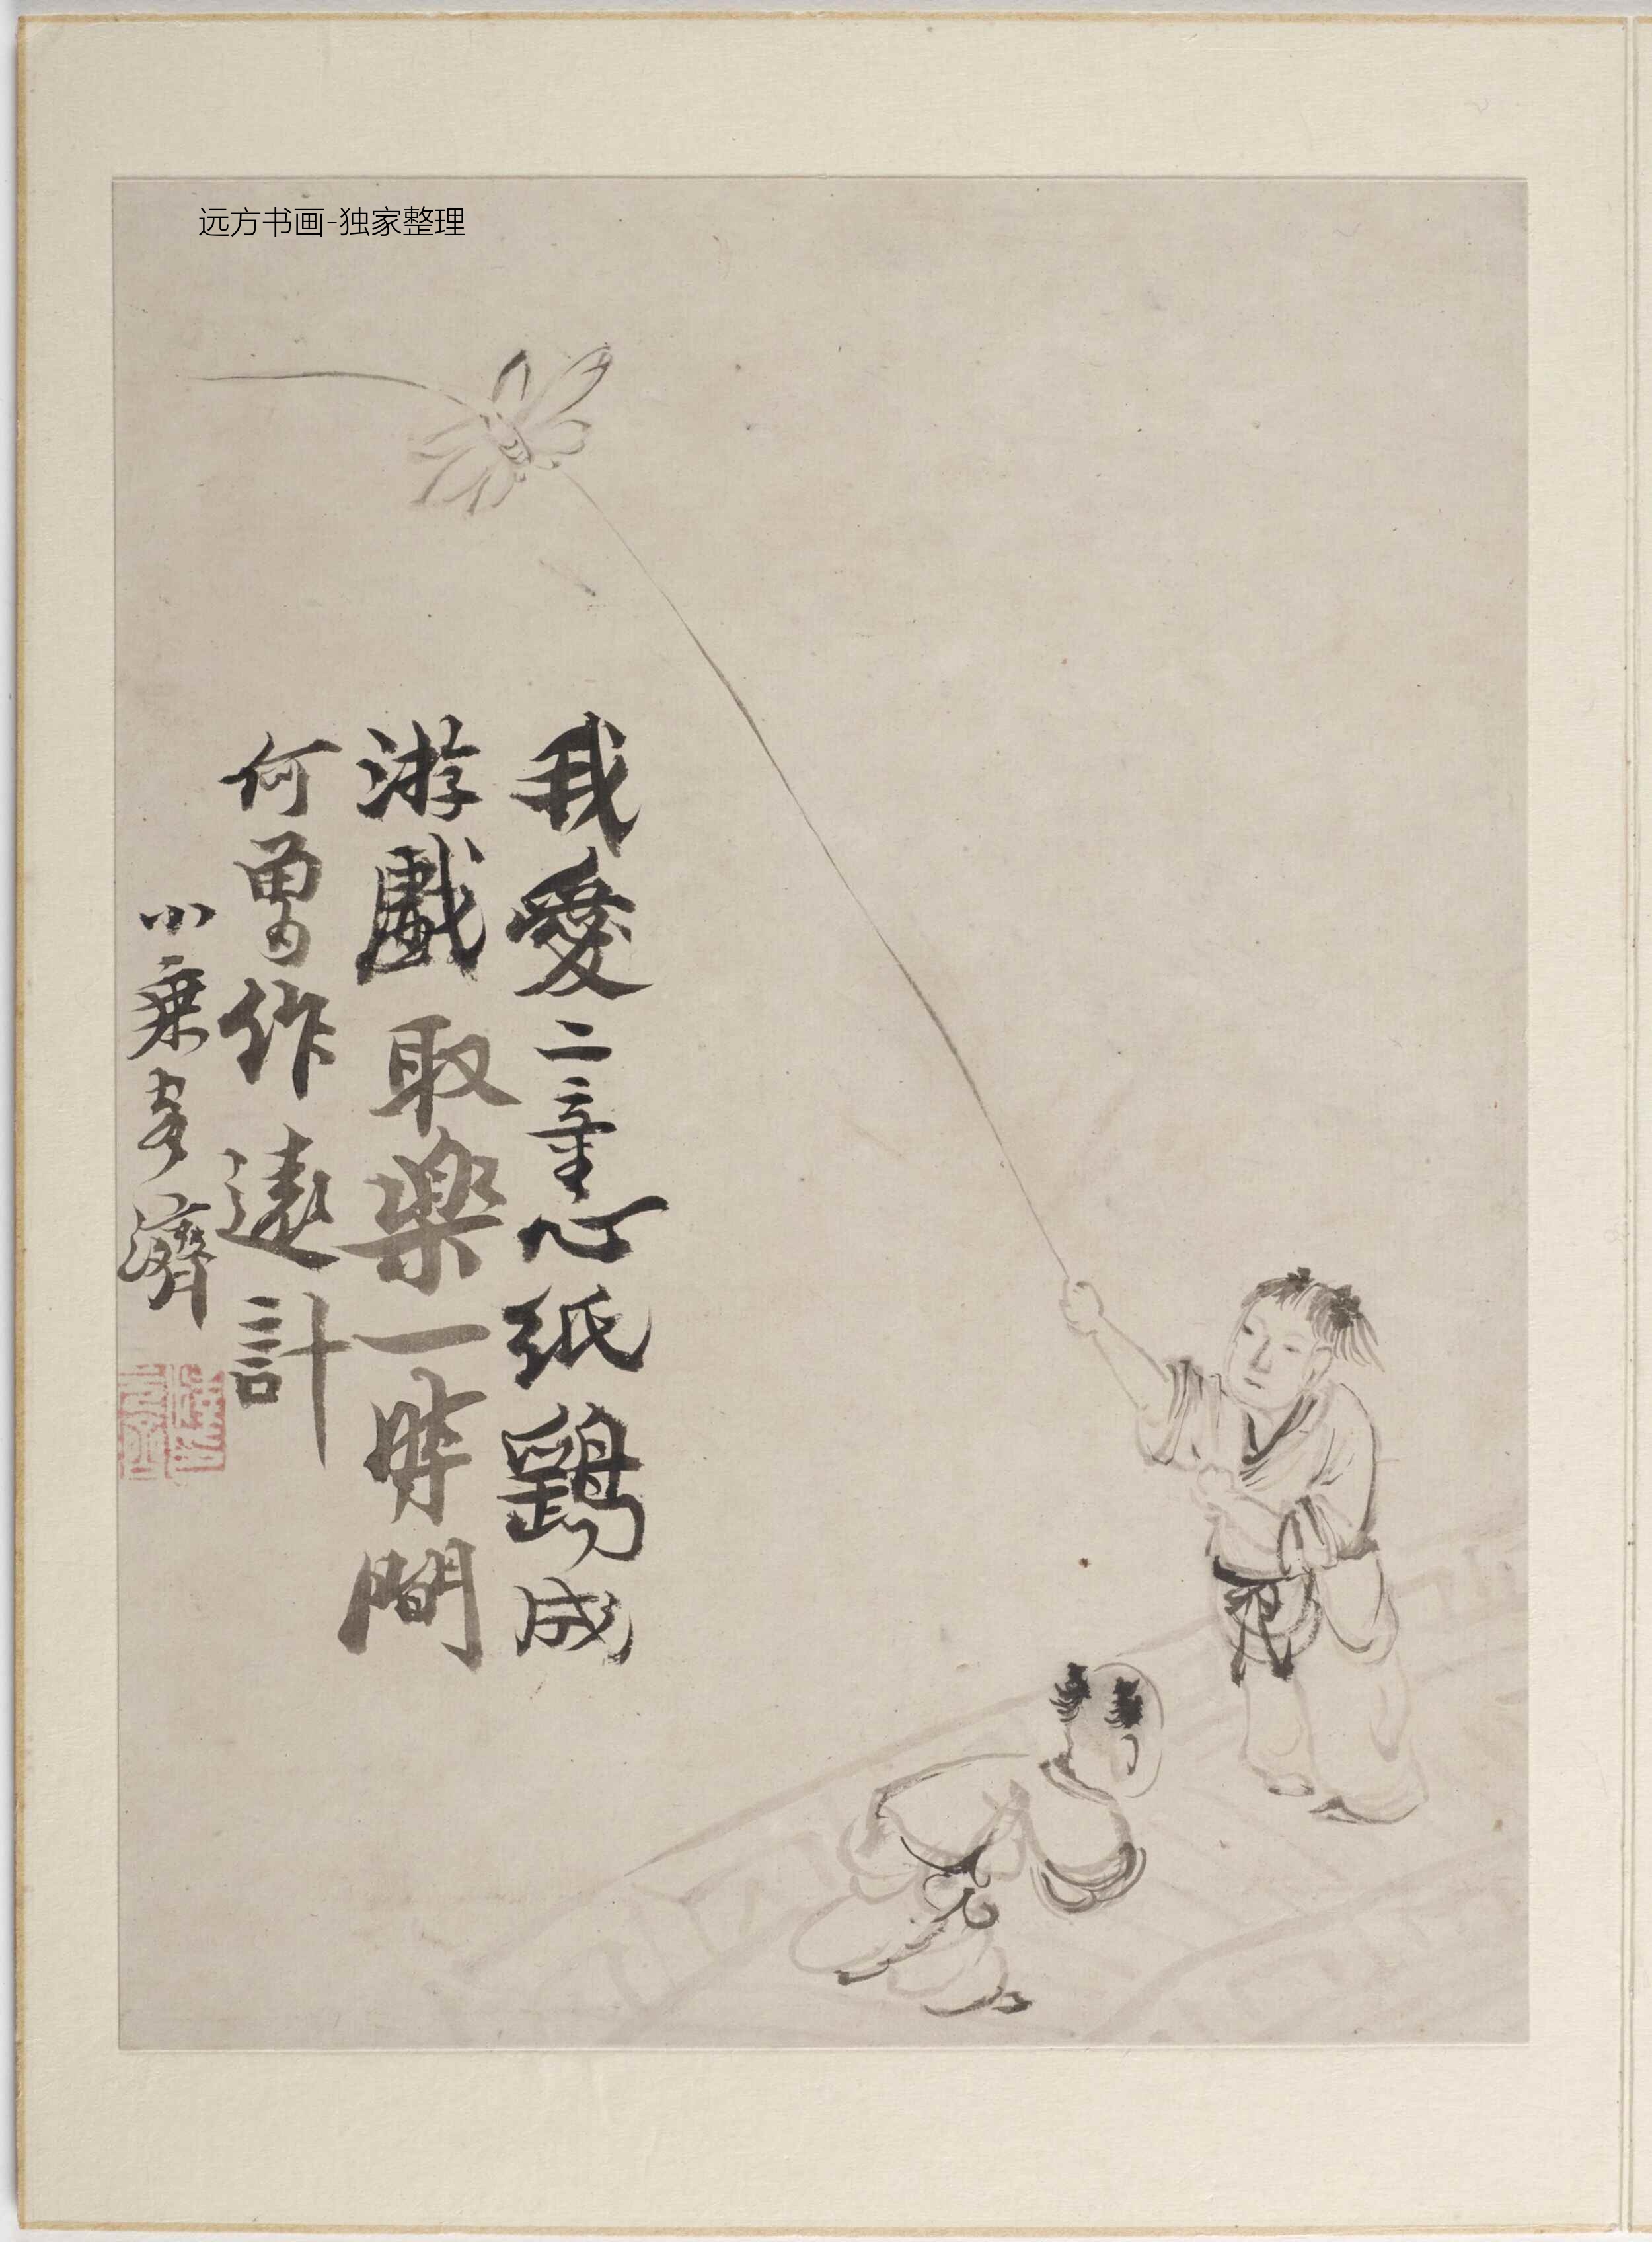 远方书画-独家整理
我愛二童心纸鷂成
游戲取樂一時間
何曾作遠計
小乘客濟